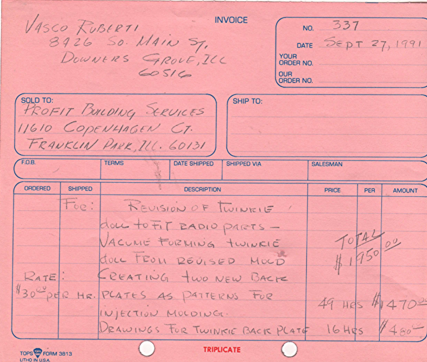 INVOICE
VASCO RUBERTI
8426 SO. MAIN ST.
DOWNERS GROVE, ILL
60516
NO. 337
DATE SEPT 27, 1991
YOUR ORDER NO.
OUR ORDER NO.
SOLD TO:
PROFIT BUILDING SERVICES
11610 COPENHAGEN CT.
FRANKLIN PARK, ILL. 60131
SHIP TO:
F.O.B. TERMS DATE SHIPPED SHIPPED VIA SALESMAN
ORDERED SHIPPED DESCRIPTION PRICE PER AMOUNT
FOR: REVISION OF TWINKIE
DOLL TO FIT RADIO PARTS -
VACUME FORMING TWINKIE TOTAL
DOLL FROM REVISED MOLD $1,950.00
RATE: CREATING TWO NEW BACK
$30.00 PER HR. PLATES AS PATTERNS FOR 49 HRS $1470.00
INJECTION MOLDING.
DRAWINGS FOR TWINKIE BACK PLATE 16 HRS $480.00
TOPS FORM 3813
LITHO IN USA
TRIPLICATE